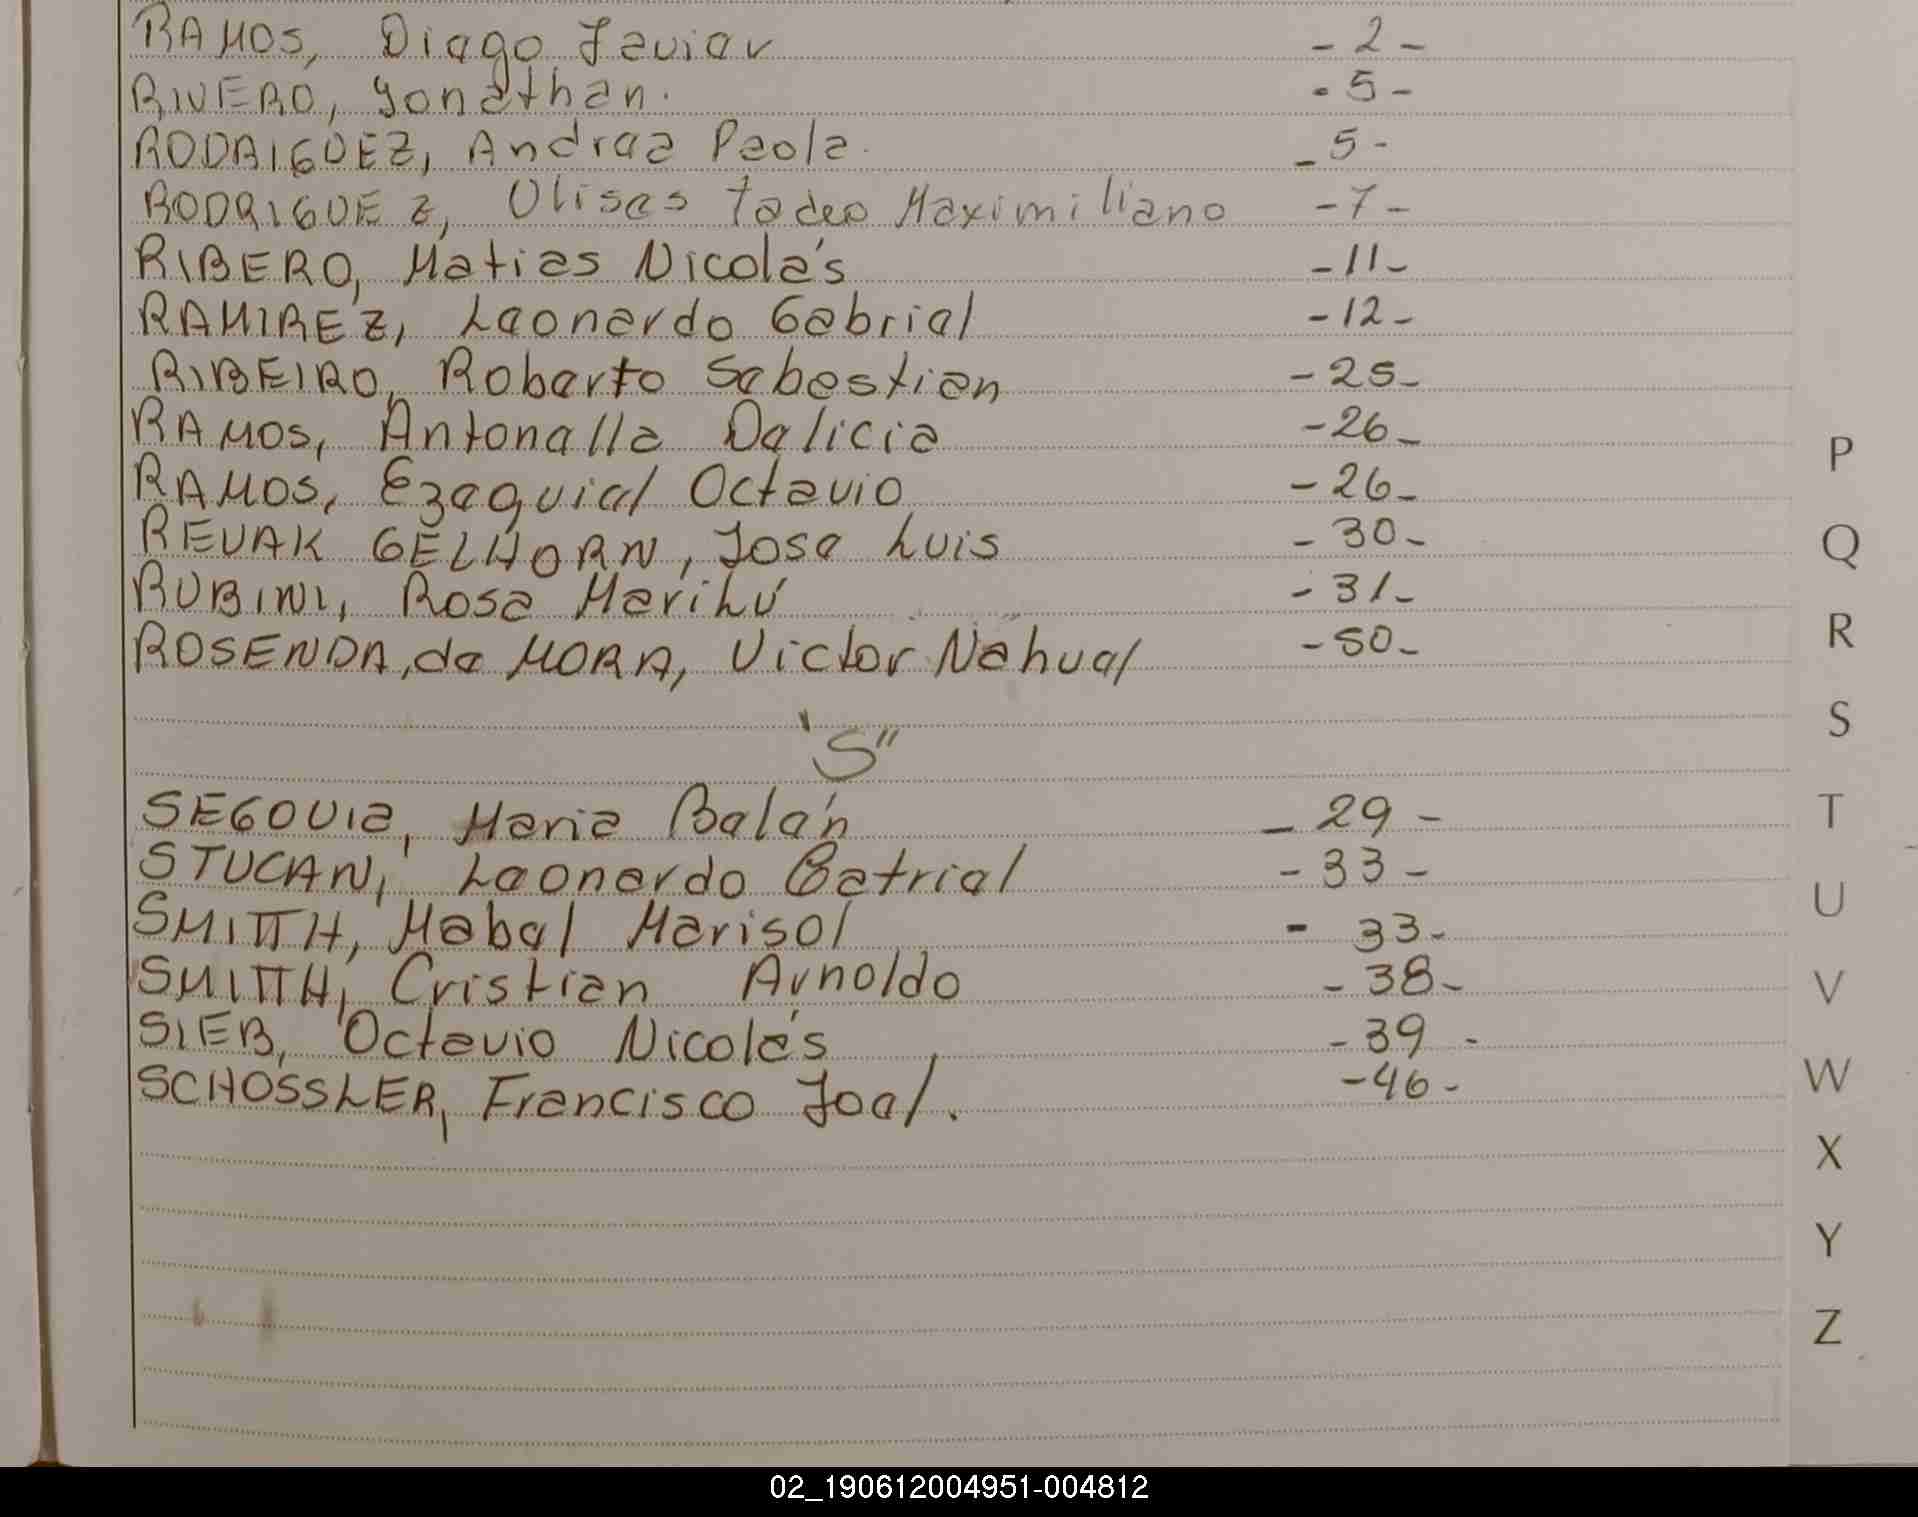 RAMOS, Diego Javier - 2 -
RIVERO, Yonathan. - 5 -
RODRIGUEZ, Andrea Paola. - 5 -
RODRIGUEZ, Ulises Tadeo Maximiliano - 7 -
RIBERO, Matias Nicolás - 11 -
RAMIREZ, Leonardo Gabriel - 12 -
RIBEIRO, Roberto Sebastian - 25 -
RAMOS, Antonella Delicia - 26 -
RAMOS, Ezequiel Octavio - 26 -
REVAK GELHORN, Jose Luis - 30 -
RUBINI, Rosa Marilú - 31 -
ROSENDA, de MORA, Victor Nahuel - 50 -
"S"
SEGOVIA, Maria Belén - 29 -
STUCAN, Leonardo Gatriel - 33 -
SMITTH, Mabel Marisol - 33 -
SMITTH, Cristian Arnoldo - 38 -
SIEB, Octavio Nicolás - 39 -
SCHOSSLER, Francisco Joel. - 46 -
P
Q
R
S
T
U
V
W
X
Y
Z
02_190612004951-004812